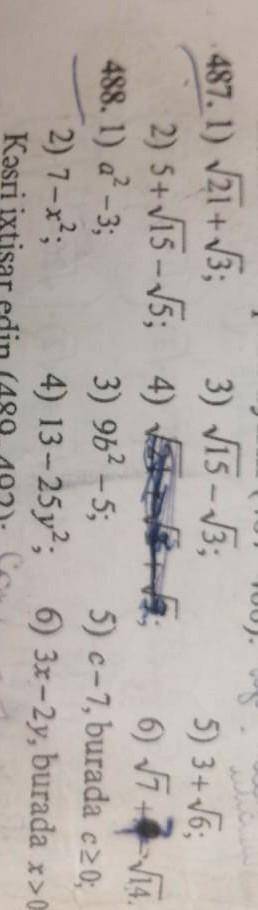 487. 1) √21 + √3; 3) √15 − √3; 5) 3 + √6;
2) 5 + √15 − √5; 4) 6) √7 + − √14.
488. 1) a² − 3; 3) 9b² − 5; 5) c − 7, burada c ≥ 0;
2) 7 − x²; 4) 13 − 25y²; 6) 3x − 2y, burada x > 0
Kəsri ixtisar edin (489